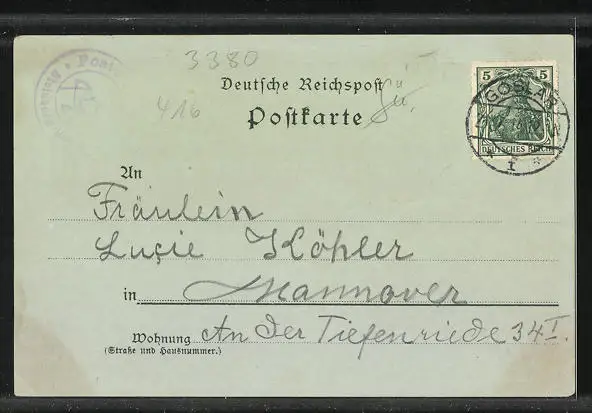 3380
416
Deutsche Reichspost
Postkarte
5 5
GOSLAR
DEUTSCHES REICH
1
An
Fräulein
Luçie Köhler
in Hannover
Wohnung An der Tiefenriede 34 I.
(Straße und Hausnummer.)